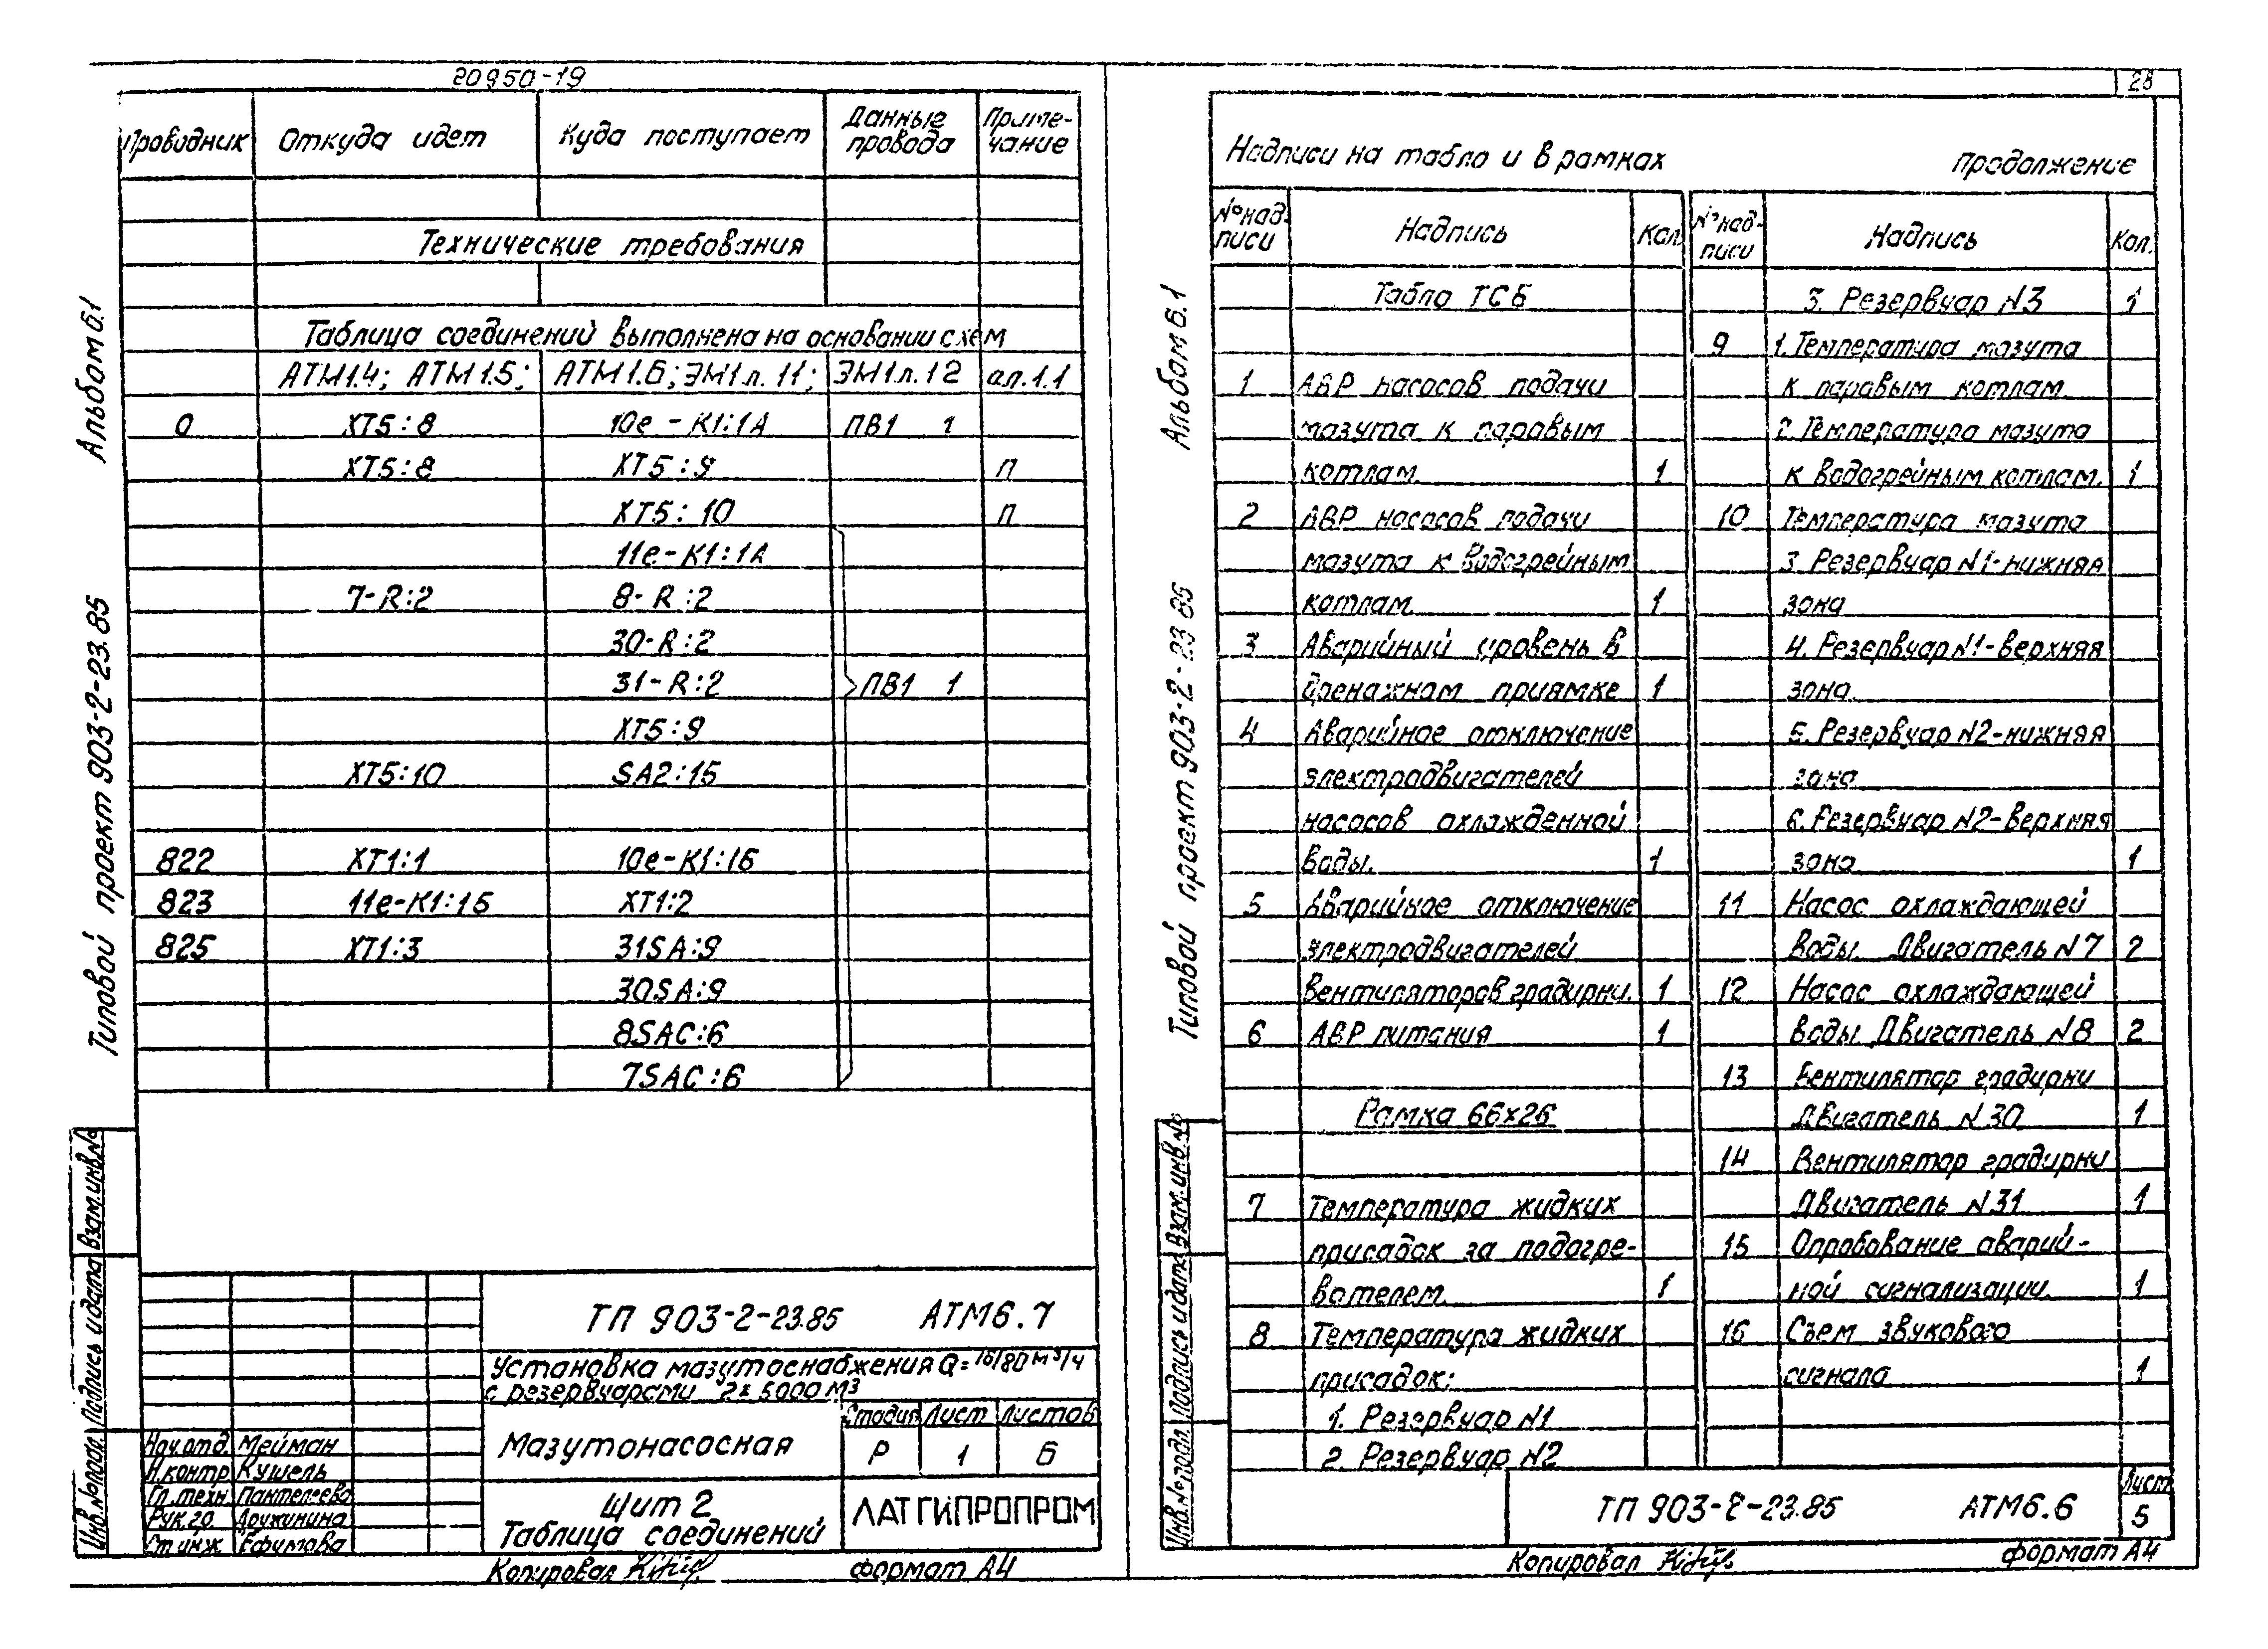 20950-19
28
Проводник Откуда идет Куда поступает Данные провода Приме-чание
Технические требования
Таблица соединений выполнена на основании схем
АТМ1.4; АТМ1.5; АТМ1.6; ЭМ1л.11; ЭМ1л.12 ал.1.1
0 ХТ5:8 10е-К1:1А ПВ1 1
ХТ5:8 ХТ5:9 п
ХТ5:10 п
11е-К1:1А
7-R:2 8-R:2
30-R:2
31-R:2 ПВ1 1
ХТ5:9
ХТ5:10 SA2:15
822 ХТ1:1 10е-К1:1Б
823 11е-К1:1Б ХТ1:2
825 ХТ1:3 31SA:9
30SA:9
8SAC:6
7SAC:6
Альбом 6.1
Типовой проект 903-2-23.85
Взам.инв.№
Подпись и дата
Инв.№подл.
ТП 903-2-23.85 АТМ6.7
Установка мазутоснабжения Q=16/80 м³/ч
с резервуарами 2х5000 м³
Мазутонасосная
Стадия Лист Листов
Р 1 6
Щит 2
Таблица соединений
ЛАТГИПРОПРОМ
Нач.отд. Мейман
Н.контр Кушель
Гл.техн Пантелеева
Рук.гр. Дружинина
Ст.инж Ефимова
Копировал
формат А4
Надписи на табло и в рамках продолжение
№ над-писи Надпись Кол.
Табло ТСБ
1 АВР насосов подачи
мазута к паровым
котлам. 1
2 АВР насосов подачи
мазута к водогрейным
котлам 1
3 Аварийный уровень в
дренажном приямке 1
4 Аварийное отключение
электродвигателей
насосов охлажденной
воды. 1
5 Аварийное отключение
электродвигателей
вентиляторов градирни. 1
6 АВР питания 1
Рамка 66х26
7 Температура жидких
присадок за подогре-
вателем. 1
8 Температура жидких
присадок:
1. Резервуар N1
2. Резервуар N2
№ над-писи Надпись Кол.
3. Резервуар N3 1
9 1. Температура мазута
к паровым котлам.
2. Температура мазута
к водогрейным котлам. 1
10 Температура мазута
3. Резервуар N1-нижняя
зона
4. Резервуар N1-верхняя
зона.
5. Резервуар N2-нижняя
зона
6. Резервуар N2-верхняя
зона 1
11 Насос охлаждающей
воды. Двигатель N7 2
12 Насос охлаждающей
воды Двигатель N8 2
13 Вентилятор градирни
Двигатель N30 1
14 Вентилятор градирни
Двигатель N31 1
15 Опробование аварий-
ной сигнализации. 1
16 Съем звукового
сигнала 1
Альбом 6.1
Типовой проект 903-2-23 85
Взам.инв.№
Подпись и дата
Инв.№подл.
ТП 903-2-23.85 АТМ6.6
Лист
5
Копировал
формат А4